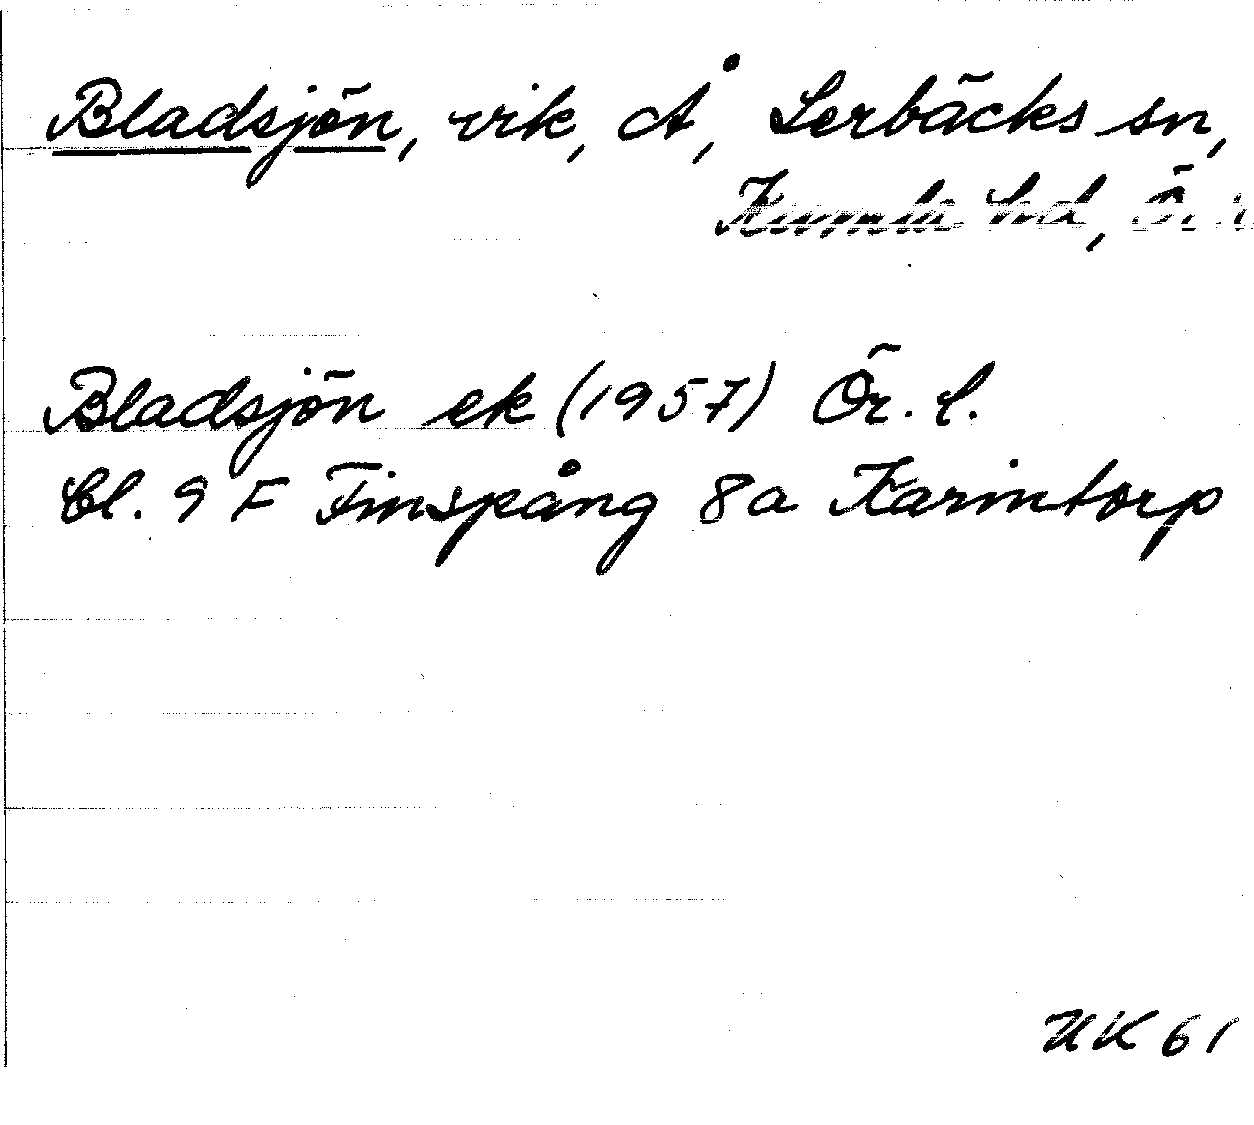 Bladsjön, vik, Å, Lerbäcks sn,
Kumla hd, Ö.
Bladsjön ek (1957) Ör. l.
bl. 9 F Finspång 8a Karintorp
UK 61